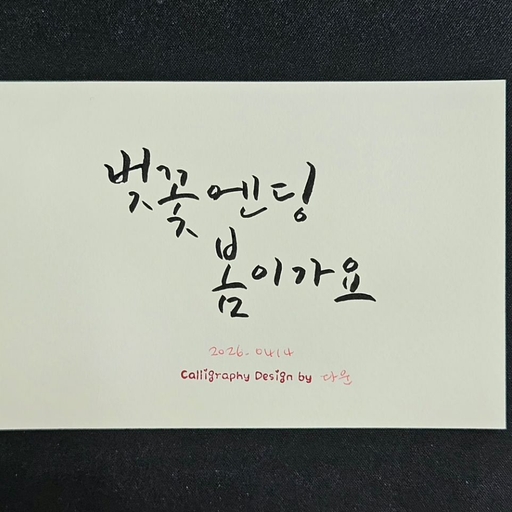 벚꽃엔딩
봄이가요
2026. 0414
Calligraphy Design by 다운